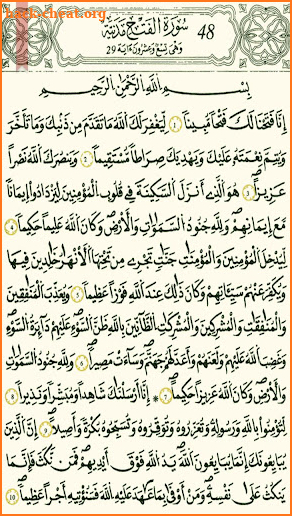 hack-cheat.org
48 سُورَةُ الفَتْحِ مَدَنِيَّة
وَهْىَ تِسْعٌ وَعِشْرُونَ ءَايَةً 29
بِسْمِ اللَّهِ الرَّحْمَٰنِ الرَّحِيمِ
إِنَّا فَتَحْنَا لَكَ فَتْحاً مُّبِيناً 1 لِّيَغْفِرَ لَكَ اَللَّهُ مَا تَقَدَّمَ مِن ذَنۢبِكَ وَمَا تَأَخَّرَ
وَيُتِمَّ نِعْمَتَهُۥ عَلَيْكَ وَيَهْدِيَكَ صِرَٰطاً مُّسْتَقِيماً 2 وَيَنصُرَكَ اَللَّهُ نَصْراً
عَزِيزاً 3 هُوَ اَلَّذِى أَنزَلَ اَلسَّكِينَةَ فِى قُلُوبِ اِلْمُؤْمِنِينَ لِيَزْدَادُوٓاْ إِيمَٰناً
مَّعَ إِيمَٰنِهِمْ وَلِلهِ جُنُودُ اُلسَّمَٰوَٰتِ وَالْأَرْضِ وَكَانَ اَللَّهُ عَلِيماً حَكِيماً 4
لِّيُدْخِلَ اَلْمُؤْمِنِينَ وَالْمُؤْمِنَٰتِ جَنَّٰتٍ تَجْرِى مِن تَحْتِهَا اَلْأَنْهَٰرُ خَٰلِدِينَ فِيهَا
وَيُكَفِّرَ عَنْهُمْ سَيِّـَٔاتِهِمْ وَكَانَ ذَٰلِكَ عِندَ اَللَّهِ فَوْزاً عَظِيماً 5 وَيُعَذِّبَ اَلْمُنَٰفِقِينَ
وَالْمُنَٰفِقَٰتِ وَالْمُشْرِكِينَ وَالْمُشْرِكَٰتِ اِلظَّآنِّينَ بِاللَّهِ ظَنَّ اَلسَّوْءِ عَلَيْهِمْ دَآئِرَةُ اُلسَّوْءِ
وَغَضِبَ اَللَّهُ عَلَيْهِمْ وَلَعَنَهُمْ وَأَعَدَّ لَهُمْ جَهَنَّمَ وَسَآءَتْ مَصِيراً 6 وَلِلهِ جُنُودُ اُلسَّمَٰوَٰتِ
وَالْأَرْضِ وَكَانَ اَللَّهُ عَزِيزاً حَكِيماً 7 * اِنَّآ أَرْسَلْنَٰكَ شَٰهِداً وَمُبَشِّراً وَنَذِيراً 8
لِّتُؤْمِنُواْ بِاللَّهِ وَرَسُولِهِۦ وَتُعَزِّرُوهُ وَتُوَقِّرُوهُ وَتُسَبِّحُوهُ بُكْرَةً وَأَصِيلاً 9 اِنَّ اَلَّذِينَ
يُبَايِعُونَكَ إِنَّمَا يُبَايِعُونَ اَللَّهَ يَدُ اُللَّهِ فَوْقَ أَيْدِيهِمْ فَمَن نَّكَثَ فَإِنَّمَا
يَنكُثُ عَلَىٰ نَفْسِهِۦ وَمَنَ اَوْفَىٰ بِمَا عَٰهَدَ عَلَيْهِ اِللَّهَ فَسَنُؤْتِيهِ أَجْراً عَظِيماً 10